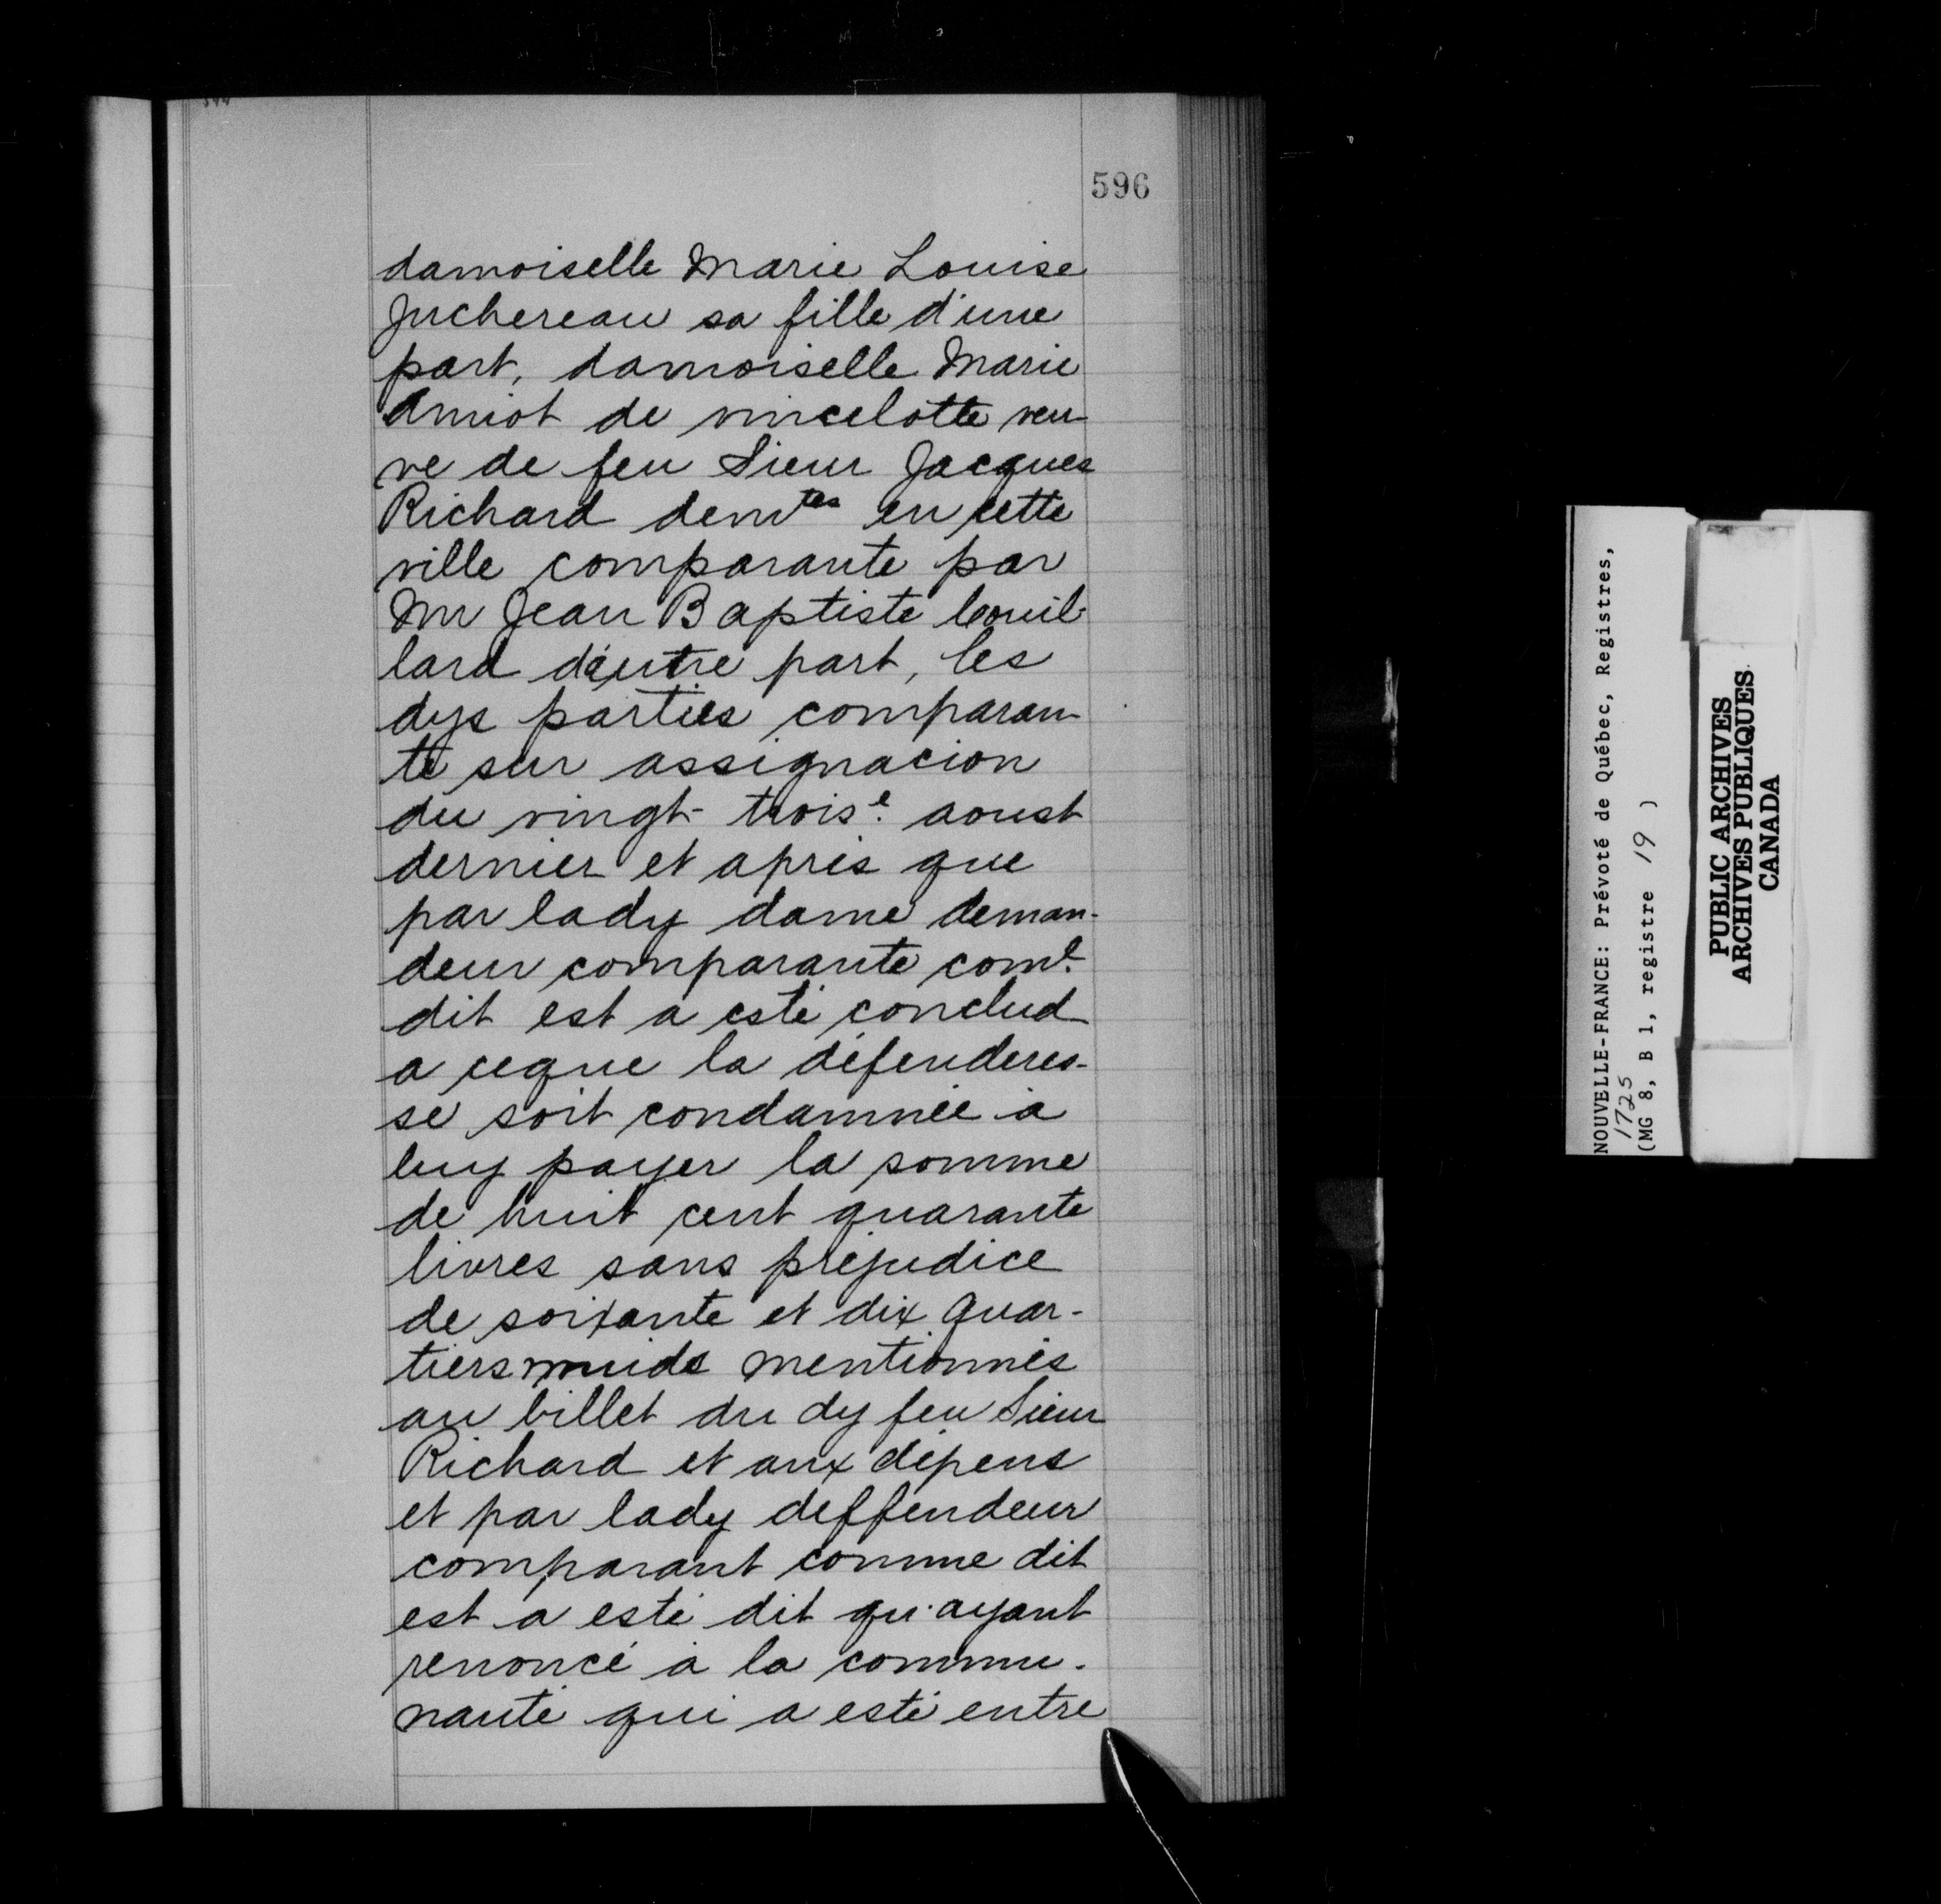 596
damoiselle Marie Louise
Juchereau sa fille d'une
part, damoiselle Marie
Amiot de vincelotte veu-
ve de feu Sieur Jacques
Richard demtes en cette
ville comparante par
Mr Jean Baptiste Couil-
lard d'autre part, les
dys parties comparan-
te sur assignacion
du vingt-trois.e aoust
dernier et après que
par lady dame deman-
deur comparante com.e
dit est a esté conclud
a ceque la défenderes-
se soit condamnée à
luy payer la somme
de huit cent quarante
livres sans préjudice
de soixante et dix quar-
tiers muids mentionnés
au billet du dy feu Sieur
Richard et aux dépens
et par lady deffendeur
comparant comme dit
est a esté dit qu'ayant
renoncé à la commu-
nauté qui a esté entre
NOUVELLE-FRANCE: Prévoté de Québec, Registres,
1725
(MG 8, B 1, registre 19 )
PUBLIC ARCHIVES
ARCHIVES PUBLIQUES
CANADA